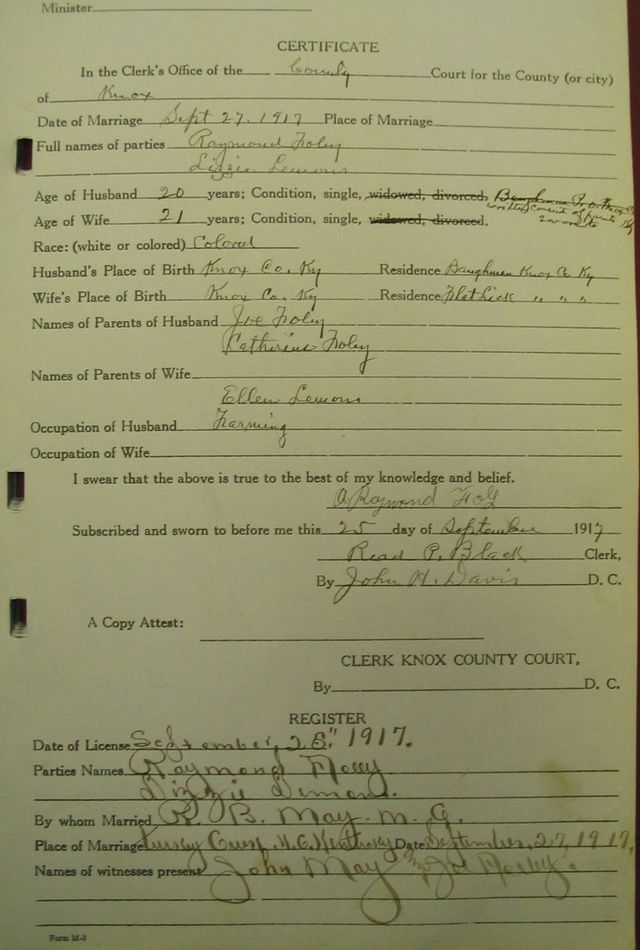 Minister
CERTIFICATE
In the Clerk's Office of the County Court for the County (or city)
of Knox
Date of Marriage Sept 27, 1917 Place of Marriage
Full names of parties Raymond Foley
Lizzie Lemons
Age of Husband 20 years; Condition, single, widowed, divorced,
written consent of
Age of Wife 21 years; Condition, single, widowed, divorced.
Race: (white or colored) Colored
Husband's Place of Birth Knox Co. Ky Residence Baughman Knox Co Ky
Wife's Place of Birth Knox Co. Ky Residence Flathick " " "
Names of Parents of Husband Joe Foley
Catherine Foley
Names of Parents of Wife
Ellen Lemons
Occupation of Husband Farming
Occupation of Wife
I swear that the above is true to the best of my knowledge and belief.
Raymond Foly
Subscribed and sworn to before me this 25 day of September 1917
Read P. Black Clerk,
By John H. Davis D. C.
A Copy Attest:
CLERK KNOX COUNTY COURT,
By D. C.
REGISTER
Date of License September, 25," 1917.
Parties Names Raymond Folly
Lizzie Limons.
By whom Married R. B. May M. G.
Place of Marriage Kentucky Date September, 27, 1917,
Names of witnesses present John May Joe
Form M-2